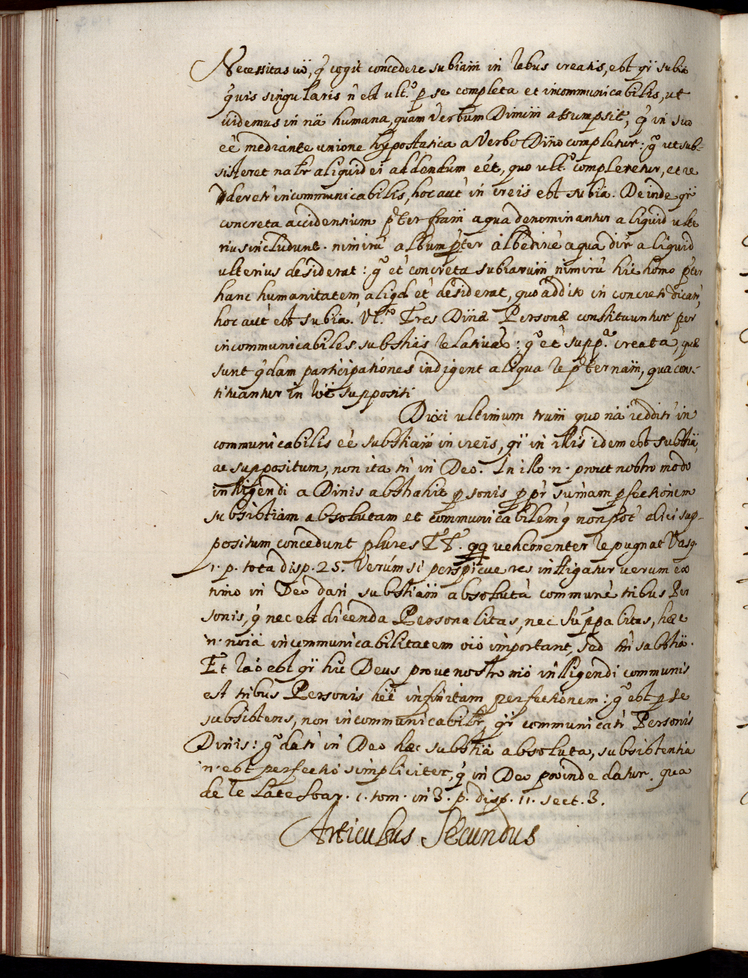 Necessitas vō, q̄ cogit concedere subiam̄ in rebus creatis, est qȝ substa
quis singularis ñ est ult.º p se completa et incommunicabilis, ut
uidemus in nā humana, quam Verbum Diuin̄ assumpsit, q̄ in suo
eē mediante unione hypostatica a Verbo Diño completur: gº ut sub-
sisteret natr aliquid ei addendum eēt, quo ult.º compleretur, et re
dderetr incommunicabilis, hoc aut in creis est subia. Deinde qȝ
concreta accidentium p̄ter fram̄ a qua denominantur aliquid ulte
rius includunt. nimirū album p̄ter albedinē a qua dir̄ aliquid
ulterius desiderat: gº et concreta subiarum nimirū hic homo p̄ter
hanc humanitatem aliqd et desiderat, quo addito in concreti dicatr,
hoc aut est subia. Ult.º Tres Dinæ Personæ constituuntur per
incommunicabiles subsstias relativas: gº et supp.ª creata, quæ
sunt q̄dam participationes indigent aliqua re p̄ter nam̄, qua cons-
tituantur in rōe suppositi
Dixi ultimum trum̄ quo nā redditr in
communicabilis eē subsstiam̄ in creis, qȝ in illis idem est subsstia,
ac suppositum, non ita tn̄ in Deo. In illo .n. prout nostro modo
intlligendi a Dinis abstrahit psonis ppr̄ sum̄am pfectionem
subsistiam absolutam et communicabilem q̄ non pot dici sup-
positum concedunt plures TT. qq vehementer repugnat Vasq.
1. p. tota disp. 25. Verúm si perspicue res intlligatur verum eo
nino in Deo dari subsstiam̄ absolutā communē tribus Per
sonis, q̄ nec est dicenda Personalitas, nec suppalitas, hæc
.n. noīa incommunicabilitatem oīo important, sed tn̄ subsstia.
Et raō est qȝ hic Deus prout nostro mō intlligendi communis
est tribus Personis het infinitam perfectionem: gº est p se
subsistens, non incommunicabilr, qȝ communicatr Personis
Dinis: gº datr in Deo hæc subsstia absoluta, subsistentia
.n. est perfectiō simpliciter, q̄ in Deo proinde datur. qua
de re late Soar. 1. tom. in 3. p. disp. 11. sect. 3.
Articulus Secundus